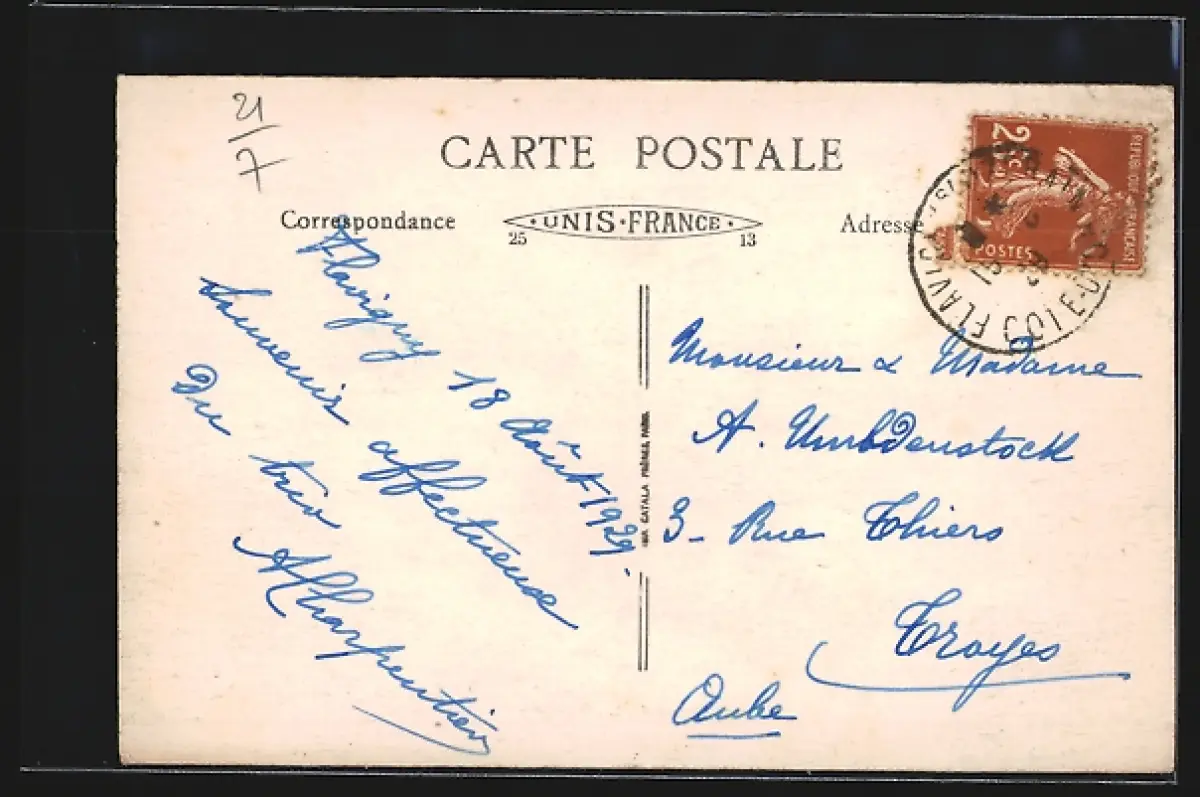 21/7
CARTE POSTALE
Correspondance
UNIS·FRANCE
25 13
Adresse
Flavigny 18 Août 1929.
Souvenir affectueux
Du trio
Charpentier
IMP. CATALA FRÈRES, PARIS.
Monsieur & Madame
A. Umbdenstock
3 - Rue Thiers
Troyes
Aube
REPUBLIQUE FRANÇAISE
POSTES
FLAVIGNY
COTE-D'OR